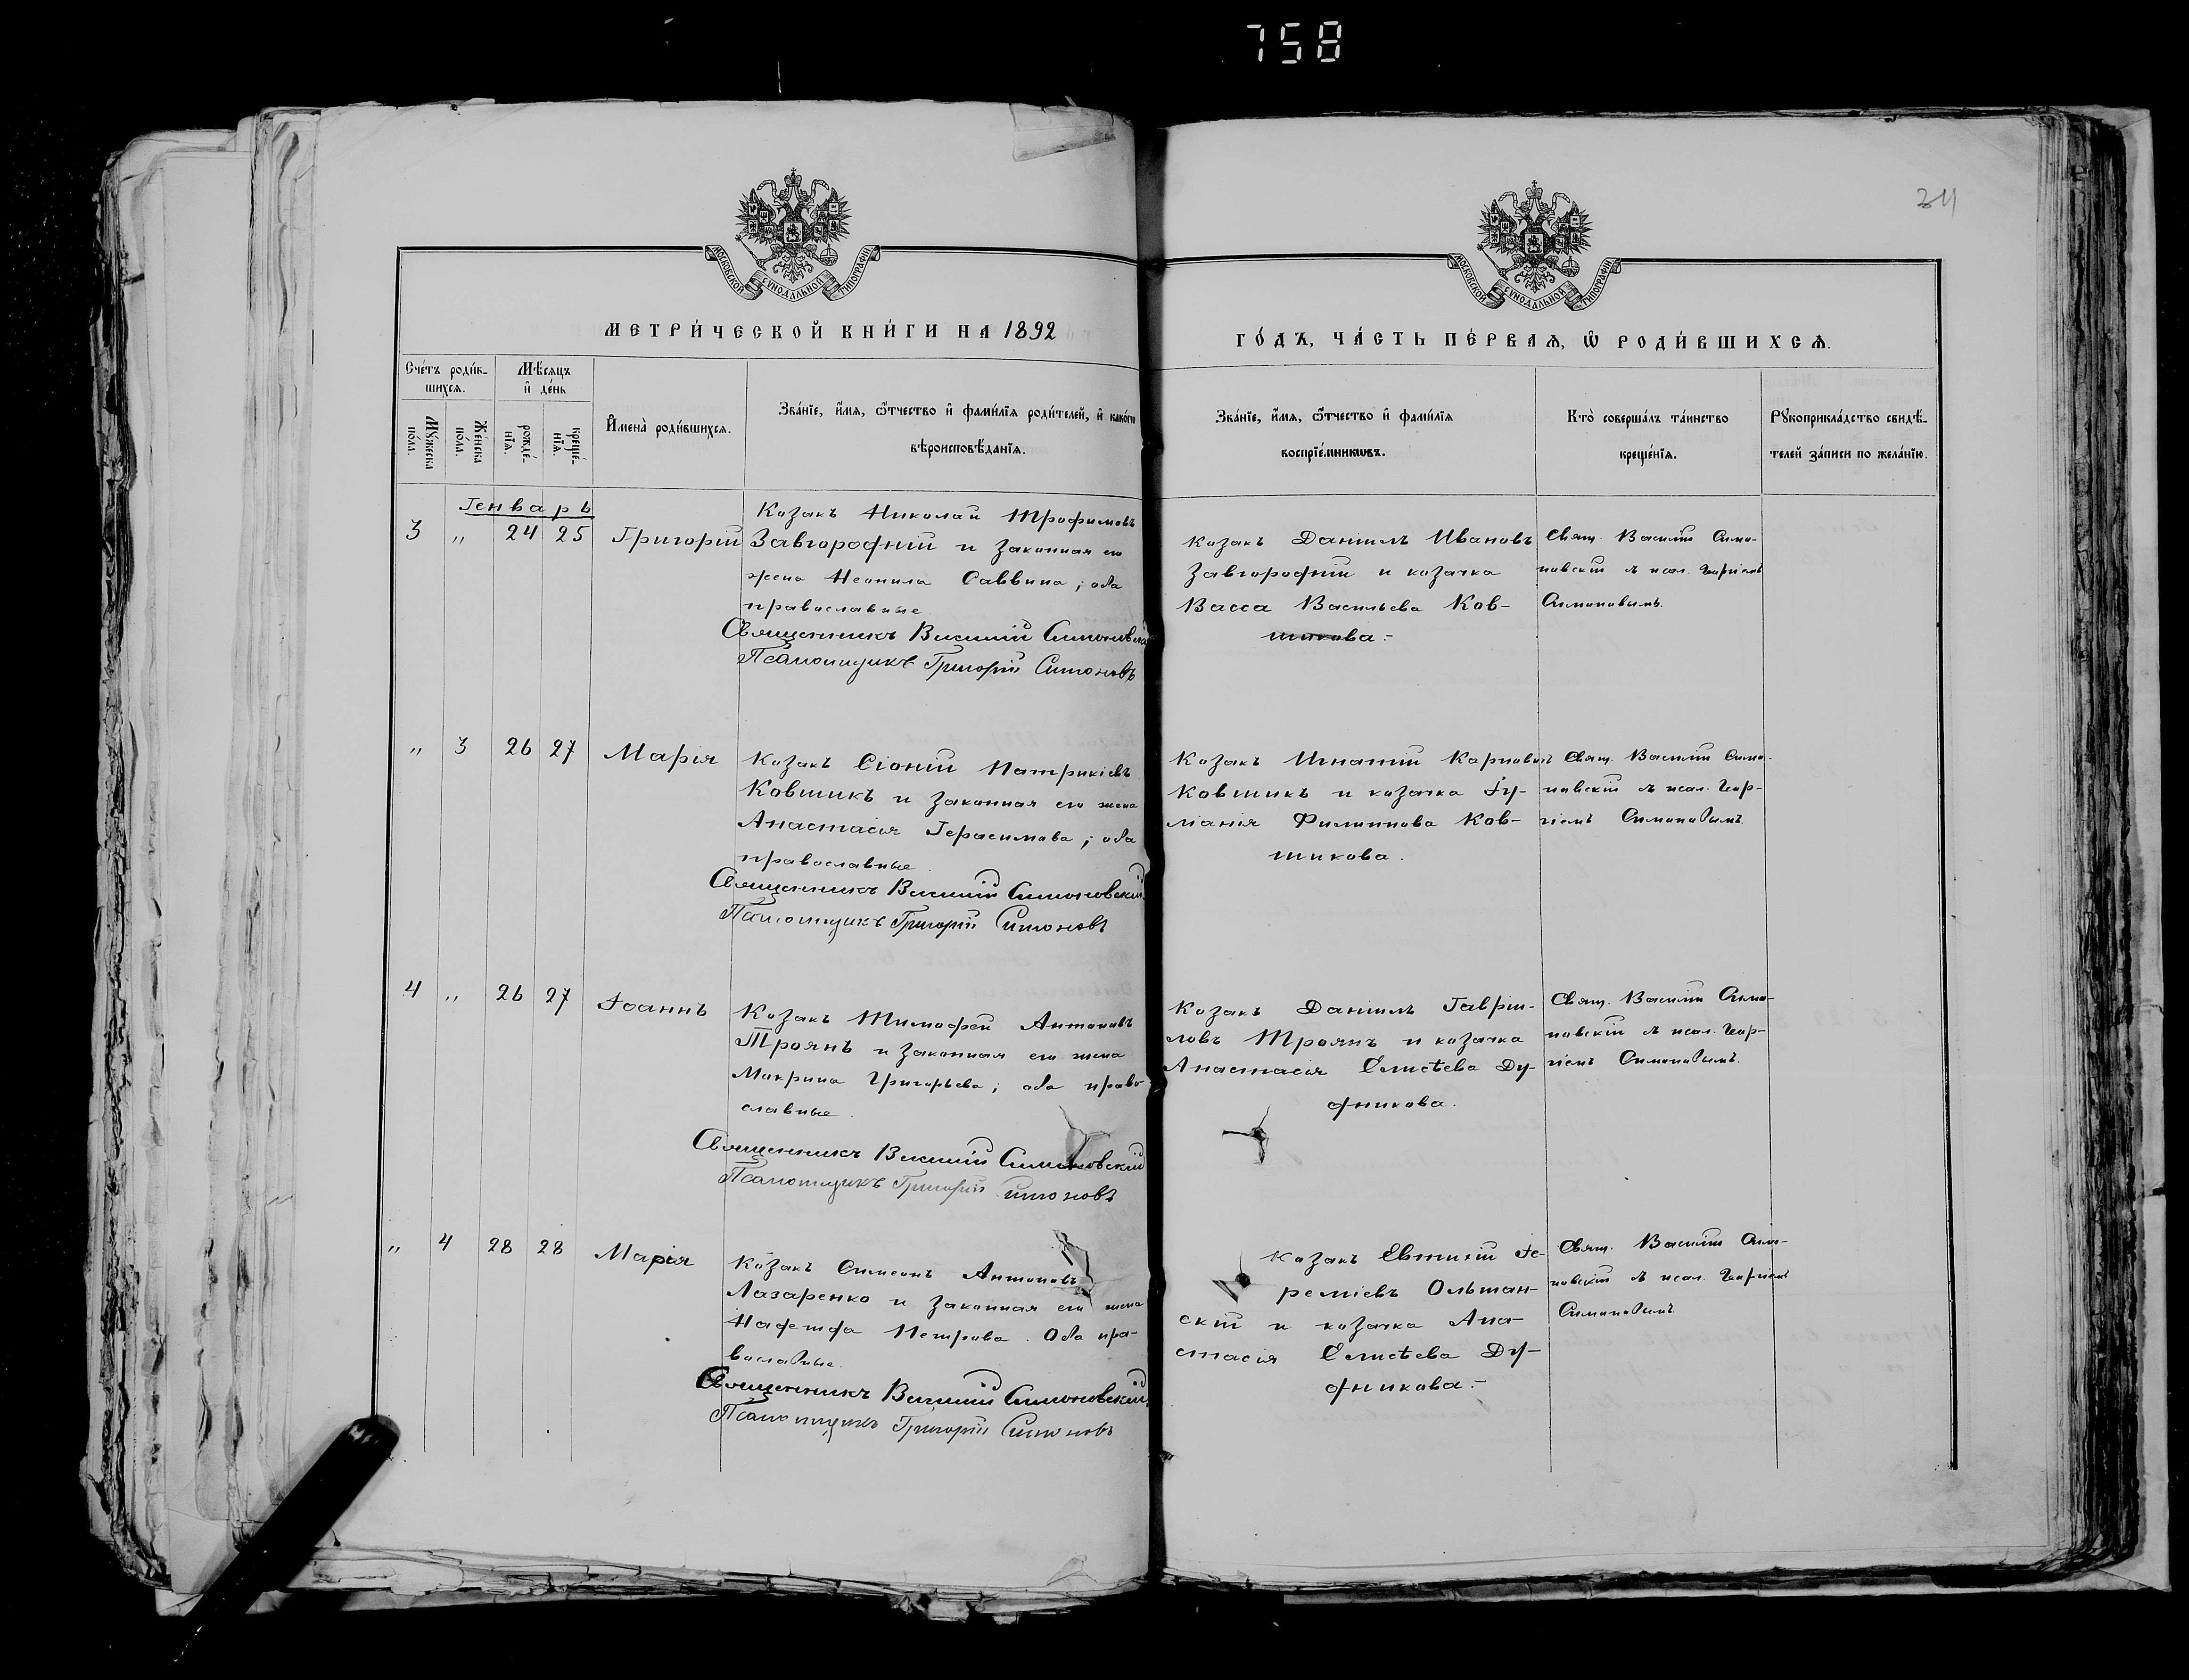 758
34
МОСКОВСКОЙ СУНОДАЛЬНОЙ ТИПОГРАФІИ
МОСКОВСКОЙ СУНОДАЛЬНОЙ ТИПОГРАФІИ
МЕТРИ́ЧЕСКОЙ КНИ́ГИ НА 1892
ГО́ДЪ, ЧА́СТЬ ПЕ́РВАѦ, Ѿ РОДИ́ВШИХСѦ.
Сче́тъ роди́в-
шихсѧ.
Мѣ́сѧцъ
и҆ де́нь
Мꙋ́жеска
по́ла.
Же́нска
по́ла.
рожде́-
нїѧ.
креще́-
нїѧ.
И҆мена̀ роди́вшихсѧ.
Зва́нїе, и҆́мѧ, ѻ҆́тчество и҆ фами́лїѧ роди́телей, и҆ како́гѡ
вѣроисповѣ́данїѧ.
Зва́нїе, и҆́мѧ, ѻ҆́тчество и҆ фами́лїѧ
воспрїе́мникѡвъ.
Кто̀ соверша́лъ та́инство
креще́нїѧ.
Рꙋкоприкла́дство свидѣ́-
телей за́писи по жела́нїю.
Генварь
3 " 24 25 Григорій
Козакъ Николай Трофимовъ
Завгородній и законная его
жена Неонила Саввина; оба
православные
Священникъ Василій Симоновскій
Псаломщикъ Григорій Симоновъ
Козакъ Даніилъ Ивановъ
Завгородній и козачка
Васса Васильева Ков-
шикова.-
Свящ. Василій Симо-
новскій съ псал. Григоріемъ
Симоновымъ.
" 3 26 27 Марія
Козакъ Сіоній Патрикіевъ
Ковшикъ и законная его жена
Анастасія Герасимова; оба
православные
Священникъ Василій Симоновскій
Псаломщикъ Григорій Симоновъ
Козакъ Игнатій Карповъ
Ковшикъ и козачка Іу-
ліанія Филиппова Ков-
шикова.
Свящ. Василій Симо-
новскій съ псал. Григо-
ріемъ Симоновымъ.
4 " 26 27 Іоаннъ
Козакъ Тимофей Антоновъ
Троянъ и законная его жена
Макрина Григорьева; оба право-
славные.
Священникъ Василій Симоновскій
Псаломщикъ Григорій Симоновъ
Козакъ Даніилъ Гавріи-
ловъ Троянъ и козачка
Анастасія Елисѣева Ду-
дникова.
Свящ. Василій Симо-
новскій съ псал. Григо-
ріемъ Симоновымъ.
" 4 28 28 Марія
Козакъ Симеонъ Антоновъ
Лазаренко и законная его жена
Надежда Петрова. Оба пра-
вославные.
Священникъ Василій Симоновскій
Псаломщикъ Григорій Симоновъ
Козакъ Евтихій Іе-
реміевъ Ольшан-
скій и козачка Ана-
стасія Елисѣева Ду-
дникова.-
Свящ. Василій Симо-
новскій съ псал. Григоріемъ
Симоновымъ.